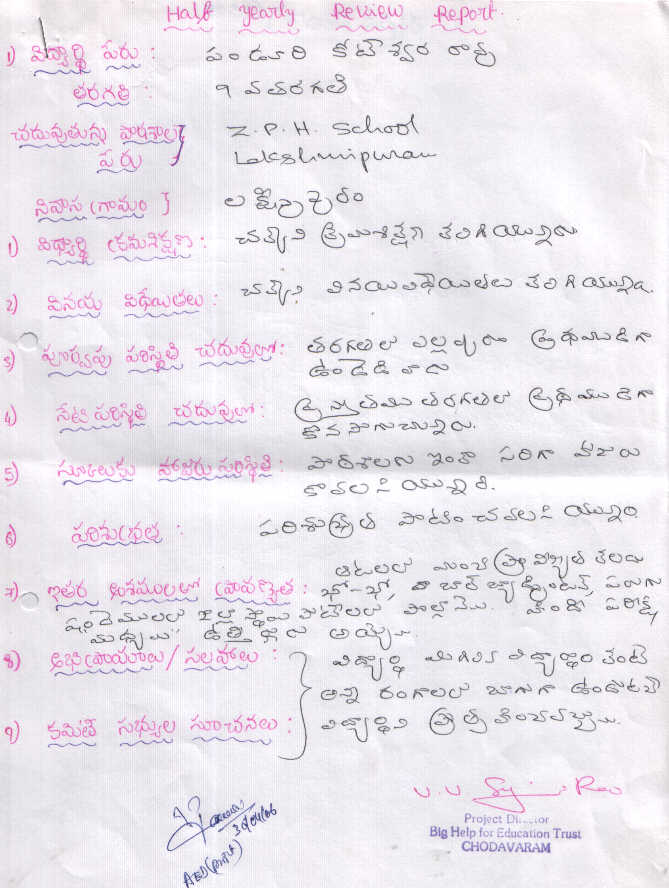 Half yearly Review Report.
1) విద్యార్థి పేరు : పండూరి కోటేశ్వర రావు
తరగతి : 9 వ తరగతి
చదువుతున్న పాఠశాల Z.P.H. School
పేరు Lakshmipuram
నివాస గ్రామం } లక్ష్మీపురం
1) విధ్యార్థి క్రమశిక్షణ : చక్కని క్రమశిక్షణ కలిగియున్నాడు
2) వినయ విధేయతలు : చక్కని వినయవిధేయతలు కలిగియున్నాడు.
3) పూర్వపు పరిస్థితి చదువులో : తరగతిలో ఎల్లప్పుడు ప్రథముడిగా
ఉండెడి వాడు
4) నేటి పరిస్థితి చదువులో : ప్రస్తుతము తరగతిలో ప్రథముడిగా
కొనసాగుచున్నాడు.
5) స్కూలుకు హాజరు పరిస్థితి : పాఠశాలకు ఇంకా సరిగా హాజరు
కావలసియున్నది.
6) పరిశుభ్రత : పరిశుభ్రత పాటించవలసియున్నది.
7) ఇతర అంశములలో ప్రావిణ్యత : ఆటలలో మంచి ప్రావిణ్యత కలదు
ఖో-ఖో, బాల్ బ్యాడ్మింటన్, పరుగు
పందెములలో జిల్లా స్థాయి పోటీలలో పాల్గొనెను. హిందీ పరీక్ష
ఉత్తీర్ణుడు అయ్యెను.
8) అభిప్రాయాలు / సలహాలు : విద్యార్థి మిగిలిన విద్యార్థుల కంటే
అన్ని రంగాలలో బాగుగా ఉండుటచే
9) కమిటీ సభ్యుల సూచనలు : విద్యార్థిని ప్రోత్సహించవచ్చును.
Project Director
Big Help for Education Trust
CHODAVARAM
30/04/06